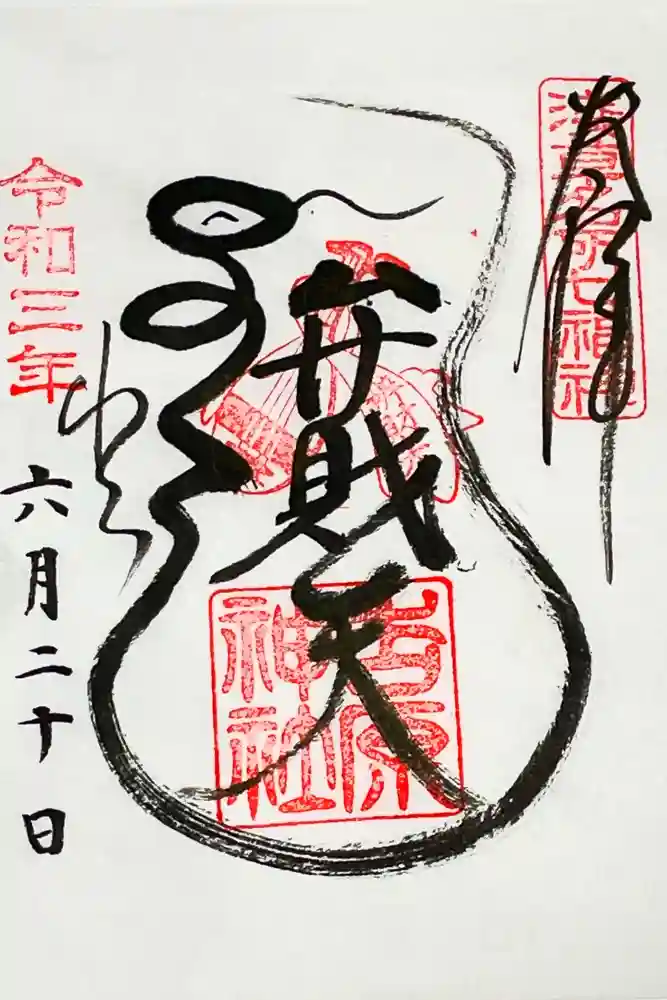 奉拝
浅草名所七福神
弁財天
吉原
神社
令和三年
六月二十日